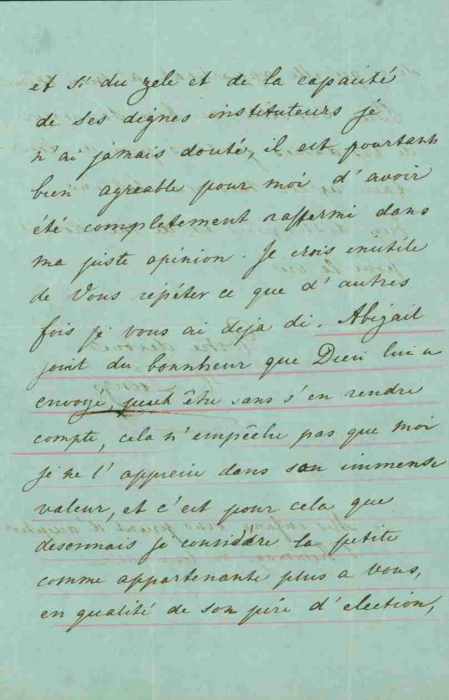 et si du zele et de la capacité
de ses dignes instituteurs je
n'ai jamais douté, il est pourtant
bien agreable pour moi d'avoir
été completement raffermi dans
ma juste opinion. Je crois inutile
de Vous repéter ce que d'autres
fois je vous ai deja di. Abigail
jouit du bonnheur que Dieu lui a
envoyé, peut être sans s'en rendre
compte, cela n'empêche pas que moi
je ne l'apprecie dans son immense
valeur, et c'est pour cela que
desonnais je considére la petite
comme appartenante plus a vous,
en qualité de son pére d'election,